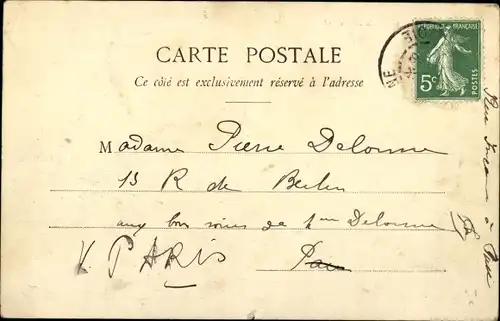 CARTE POSTALE
Ce côté est exclusivement réservé à l'adresse
REPUBLIQUE FRANÇAISE
5c
POSTES
Madame Pierre Delorme
13 R de Berlin
aux bons soins de Mme Delorme
V. PARIS